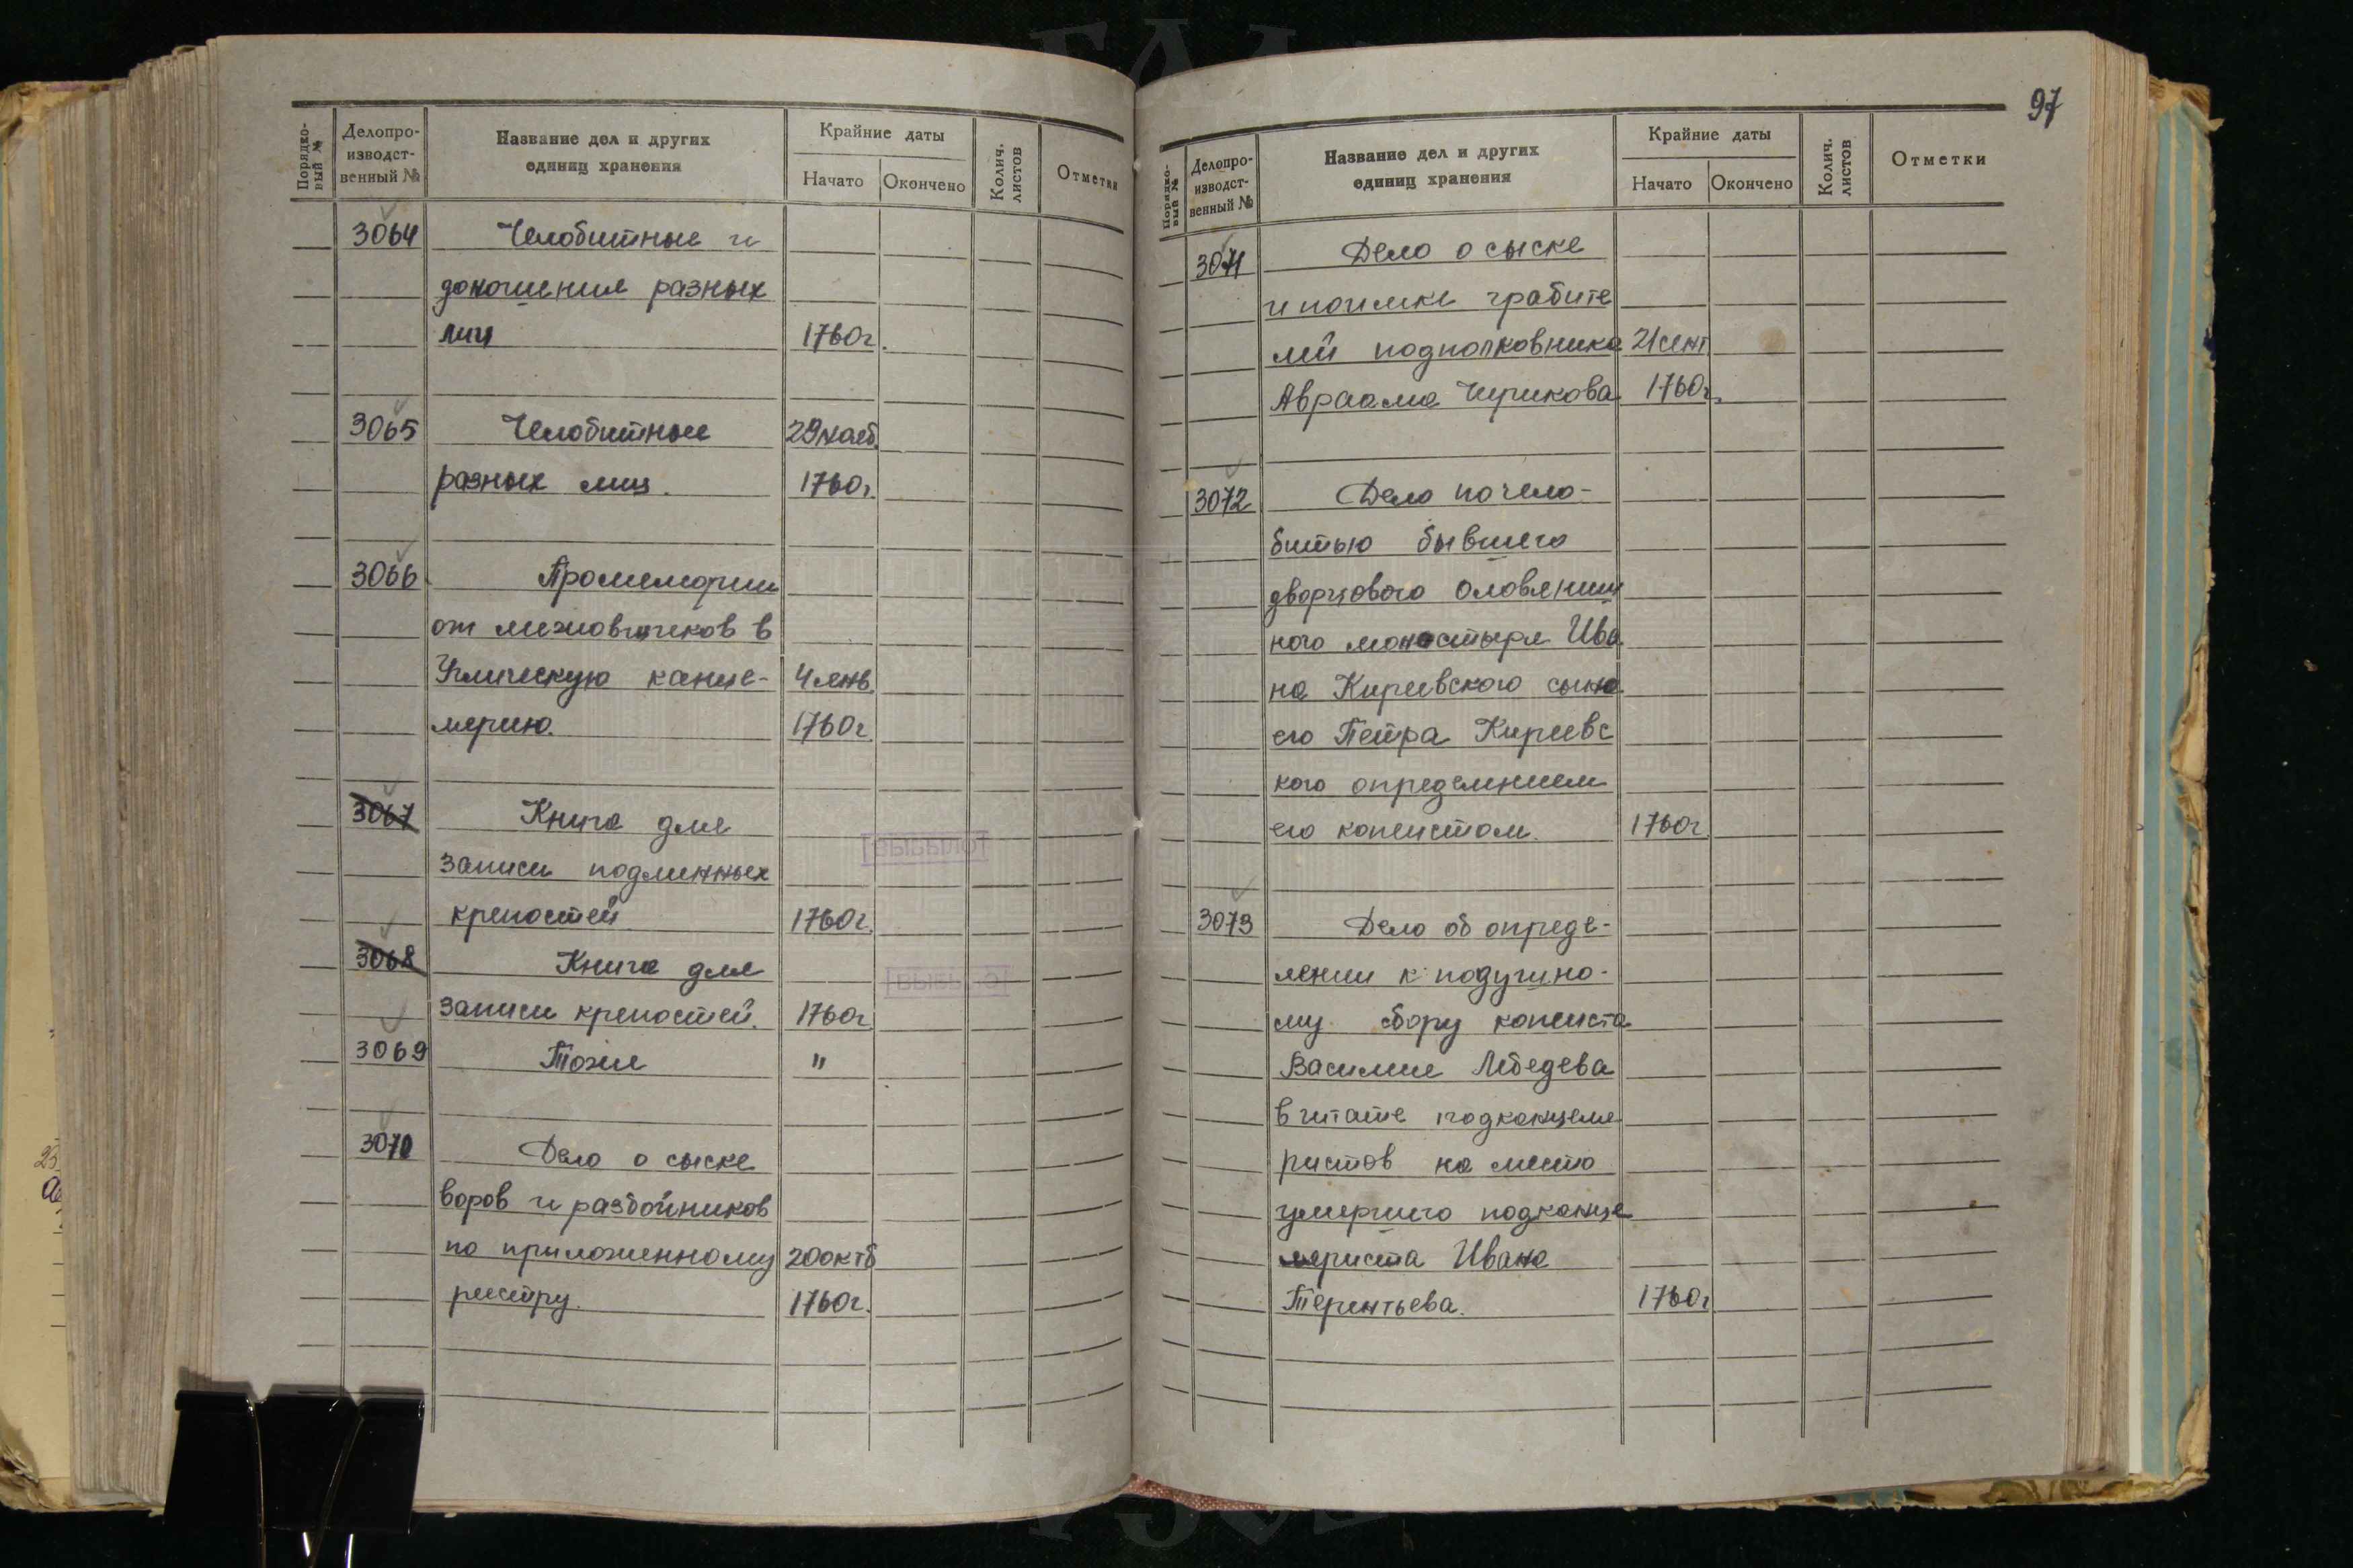 Порядко-
вый №
Делопро-
изводст-
венный №
Название дел и других
единиц хранения
Крайние даты
Начато
Окончено
Колич.
листов
Отметки
3064 Челобитные и
доношения разных
лиц 1760г.
3065 Челобитные 29 нояб.
разных лиц. 1760г.
3066 Промемории
от межовщиков в
Углическую канце- 4 янв.
лярию. 1760г.
3067 Книга для
записи подлинных
крепостей 1760г.
3068 Книга для
записи крепостей. 1760г
3069 Тоже "
3070 Дело о сыске
воров и разбойников
по приложенному 20 октб
реестру. 1760г.
97
Порядко-
вый №
Делопро-
изводст-
венный №
Название дел и других
единиц хранения
Крайние даты
Начато
Окончено
Колич.
листов
Отметки
3071 Дело о сыске
и поимке грабите
лей подполковника 21 сент
Авраама Чирикова 1760г.
3072 Дело по чело-
битью бывшего
дворцового
ного монастыря Ива
на Киреевского сына
его Петра Киреевс
кого определением
его копеистом. 1760г.
3073 Дело об опреде-
лении к подушно-
му сбору копеиста
Василие Лебедева
в штате подканцеля
ристов на место
умершего подканце
ляриста Ивана
Терентьева. 1760г